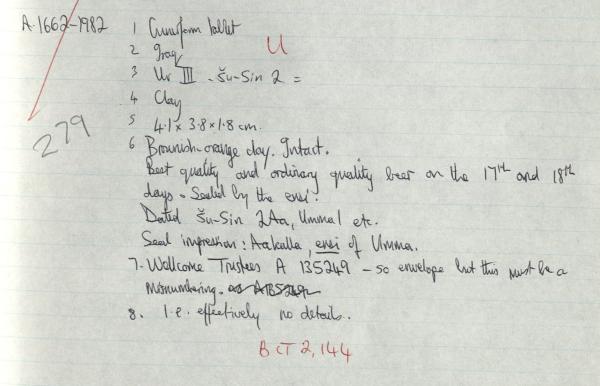 A.1662-1982 1 Cuneiform tablet
U
2 Iraq
3 Ur III - Šu-Sin 2 =
4 Clay
279
5 4.1 x 3.8 x 1.8 cm.
6 Brownish-orange clay. Intact.
Best quality and ordinary quality beer on the 17th and 18th
days. Sealed by the ensi.
Dated Šu-Sin 2Aa, Umma1 etc.
Seal impression: Aakalla, ensi of Umma.
7. Wellcome Trustees A 135249 - so envelope but this must be a
misnumbering.
8. I.e. effectively no details.
BCT 2, 144